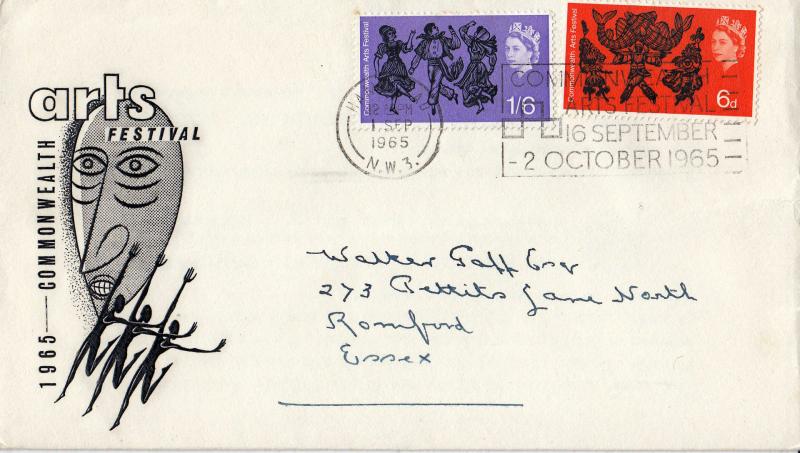 arts
FESTIVAL
1965 — COMMONWEALTH
Commonwealth Arts Festival
1/6
Commonwealth Arts Festival
6d
PM
1 SEP
1965
N.W.3.
COMMONWEALTH
ARTS FESTIVAL
16 SEPTEMBER
- 2 OCTOBER 1965
Walter Esqr
273 Pettits Lane North
Romford
Essex